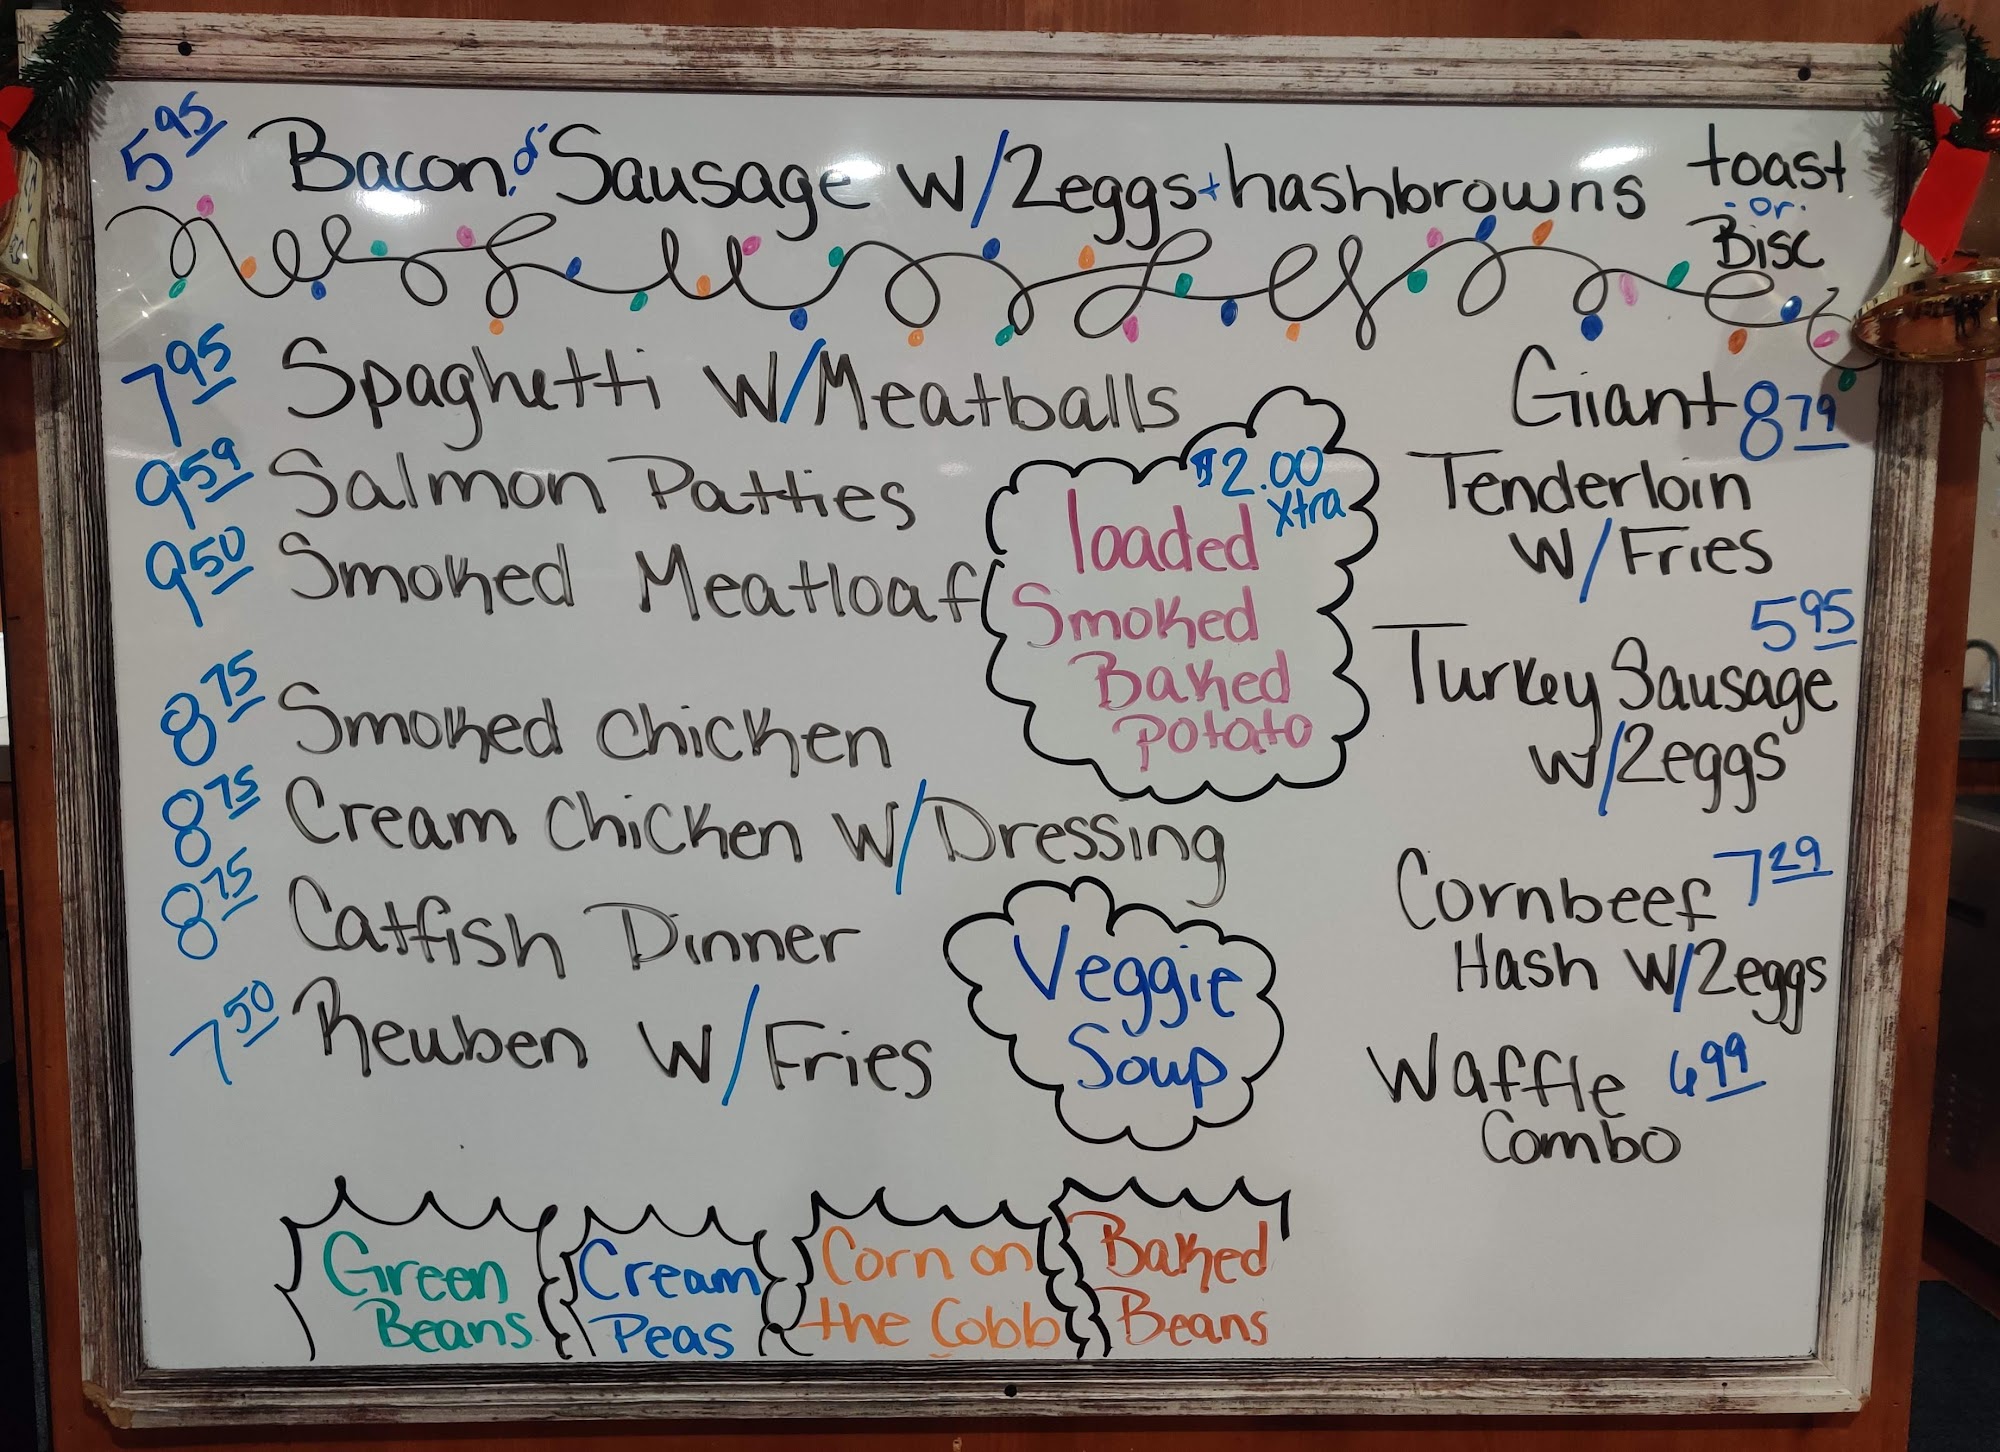 5.95 Bacon or Sausage w/2eggs + hashbrowns toast
or
Bisc
7.95 Spaghetti w/Meatballs
9.59 Salmon Patties
9.50 Smoked Meatloaf
8.75 Smoked Chicken
8.75 Cream Chicken w/Dressing
8.75 Catfish Dinner
7.50 Reuben w/Fries
$2.00
Xtra
loaded
Smoked
Baked
Potato
Veggie
Soup
Giant 8.79
Tenderloin
w/Fries
5.95
Turkey Sausage
w/2eggs
Cornbeef 7.29
Hash w/2eggs
Waffle 6.99
Combo
Green
Beans
Cream
Peas
Corn on
the Cobb
Baked
Beans